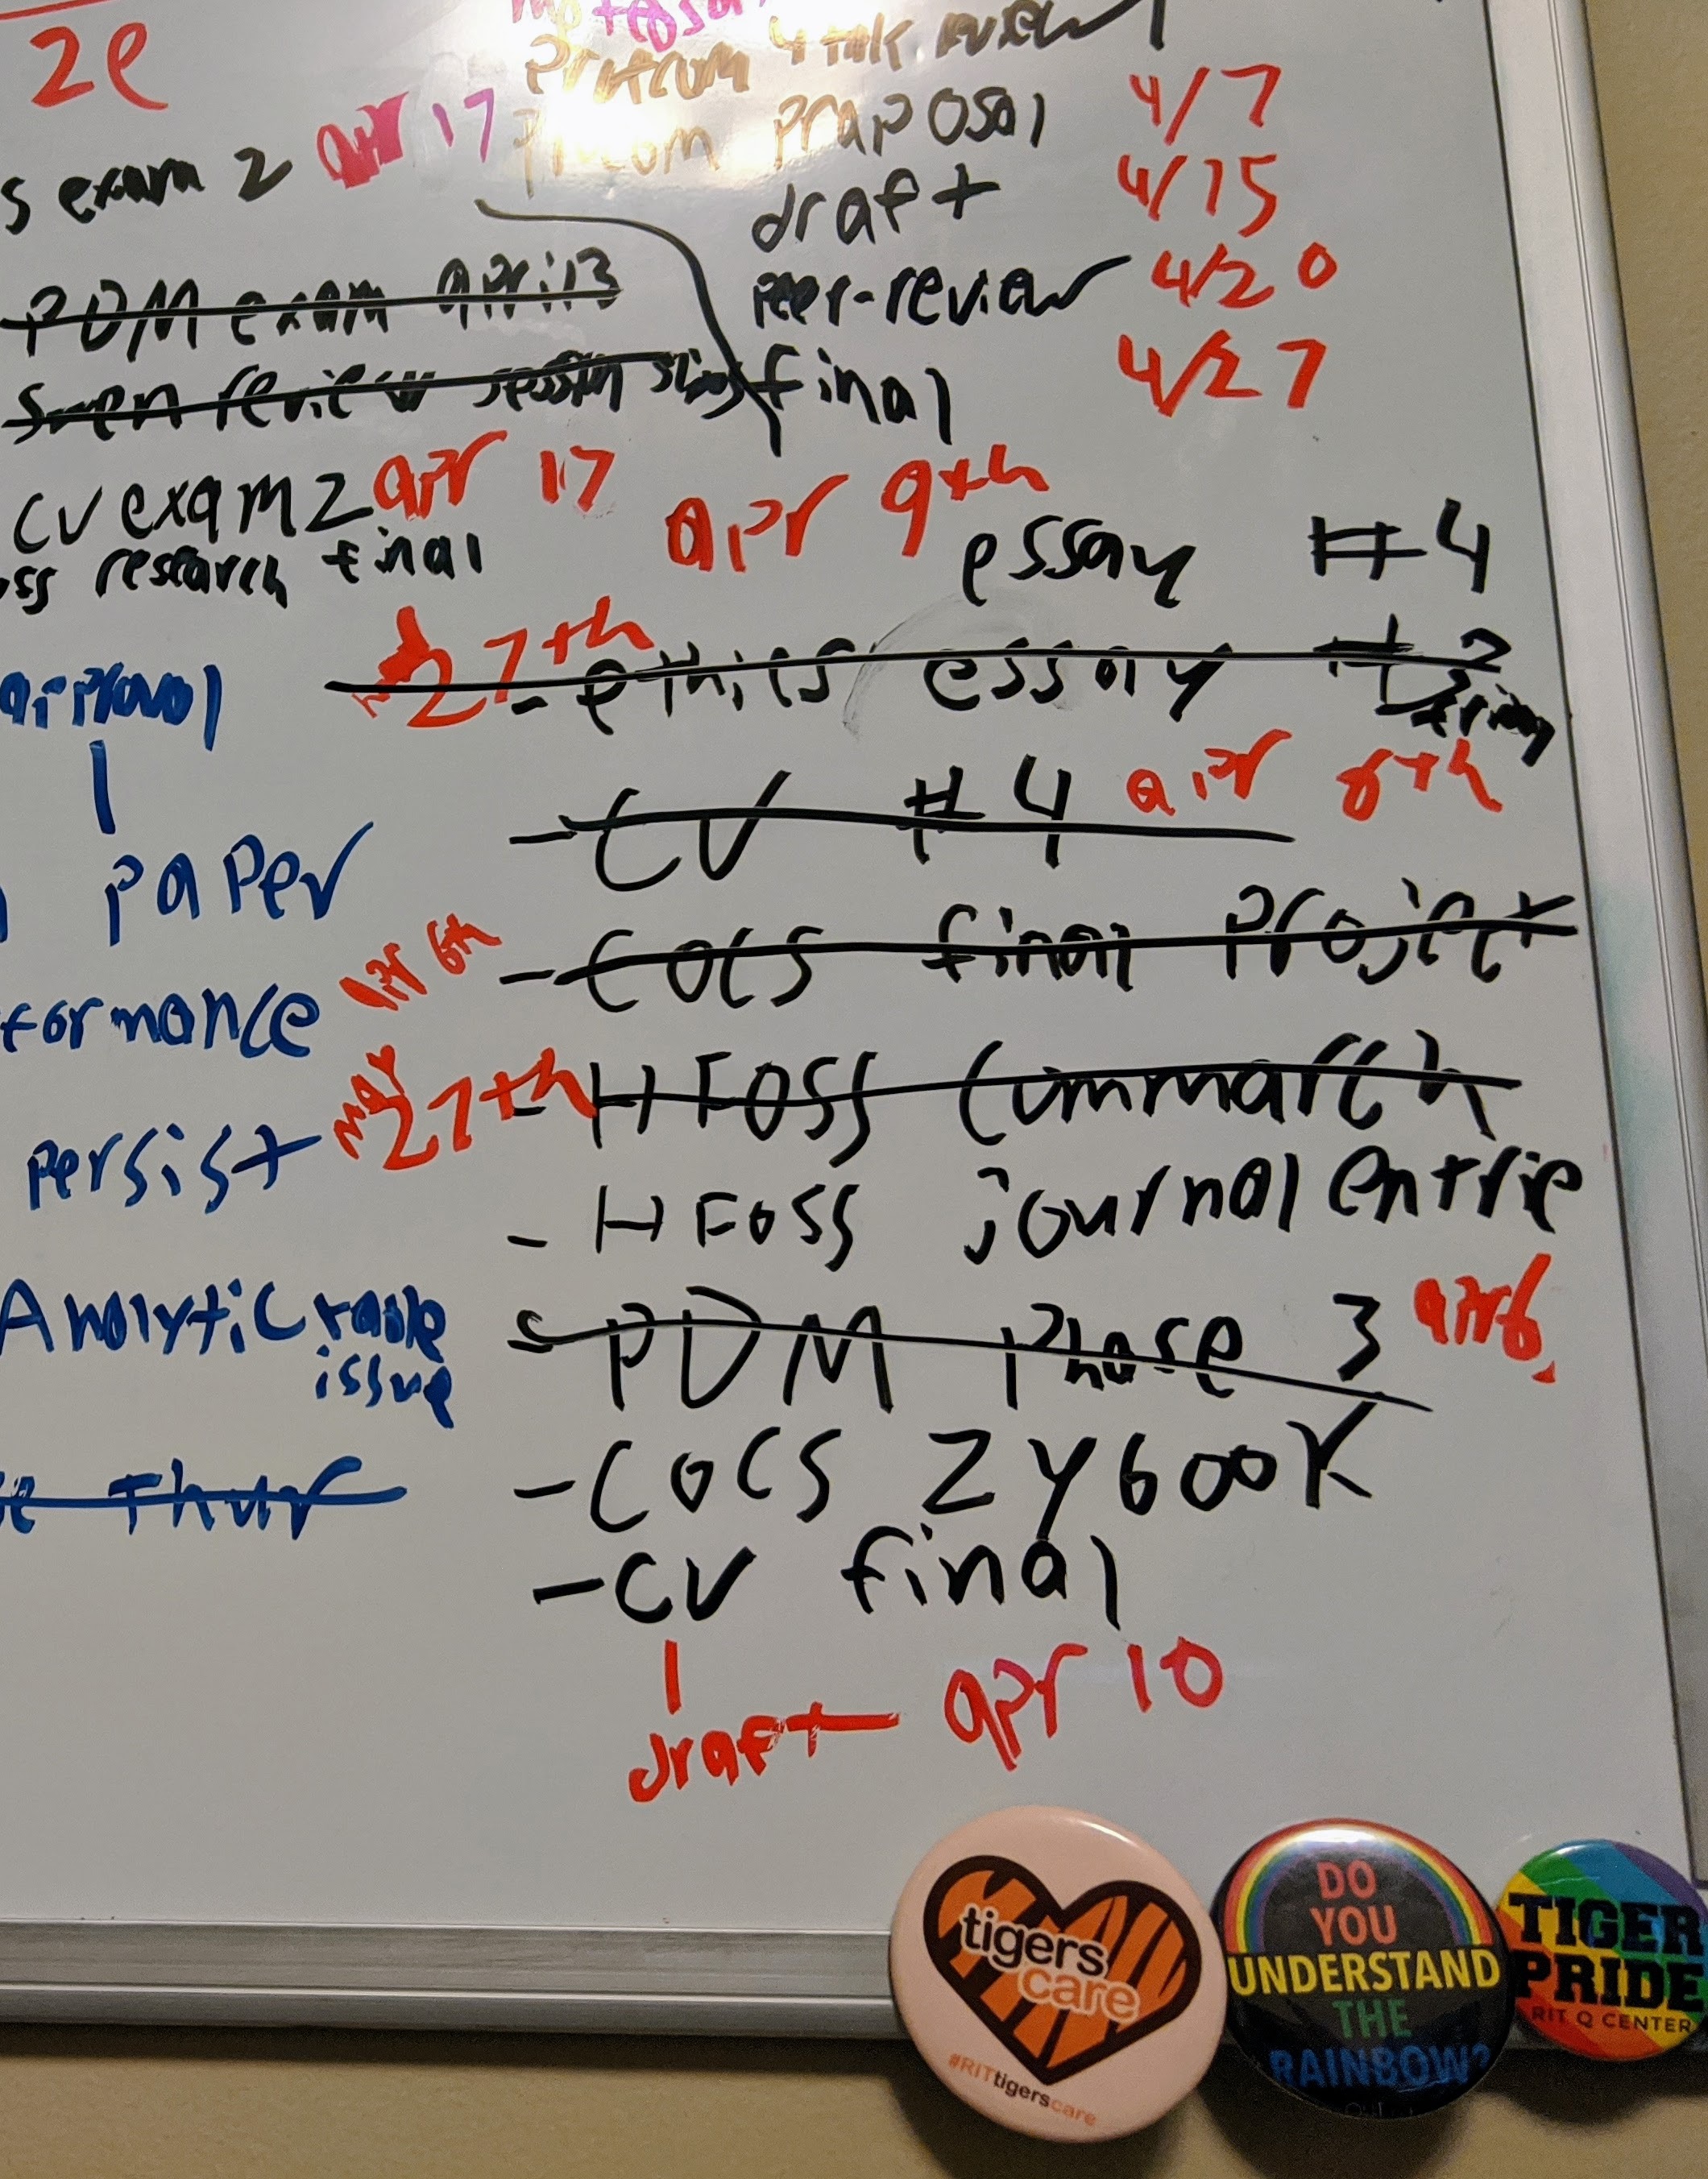 2e
4 talk review
proposal 4/7
s exam 2 apr 17
draft 4/15
PDM exam april 3
peer-review 4/20
review session
final 4/27
CV exam 2 apr 17
apr 9th
essay #4
oss research final
27th - ethics essay #
approval
- CV #4 apr 6th
paper
- COCS final project
apr 6th
formance
may 27th - HFOSS Commarch
persist
- HFOSS journal entrie
Analytic table
issue
- PDM Phase 3 apr 6
- COCS Zybook
thur
- CV final
draft - apr 10
tigers
care
#RITtigerscare
DO
YOU
UNDERSTAND
THE
RAINBOW?
TIGER
PRIDE
RIT Q CENTER